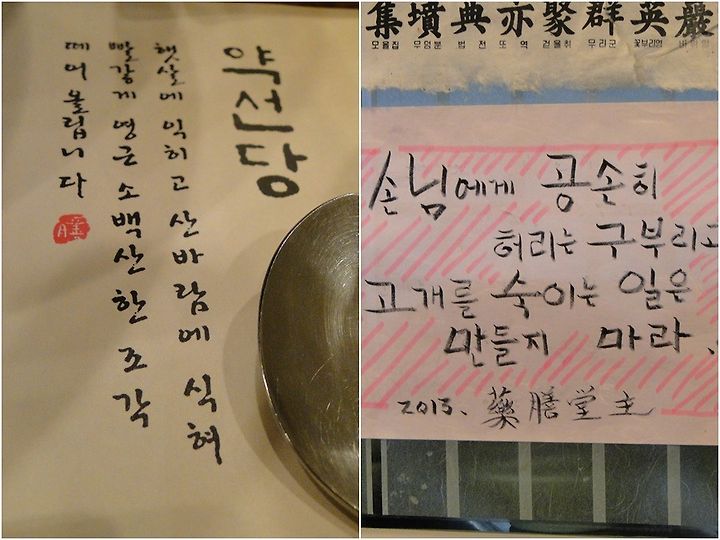 약선당
햇살에 익히고 산바람에 식혀
빨갛게 영근 소백산 한 조각
떼어 올립니다
膳
集墳典亦聚群英嚴
모을집 무덤분 법전 또역 걷을취 무리군 꽃부리영
손님에게 공손히
허리는 구부리고
고개를 숙이는 일은
만들지 마라.
2013. 藥膳堂主